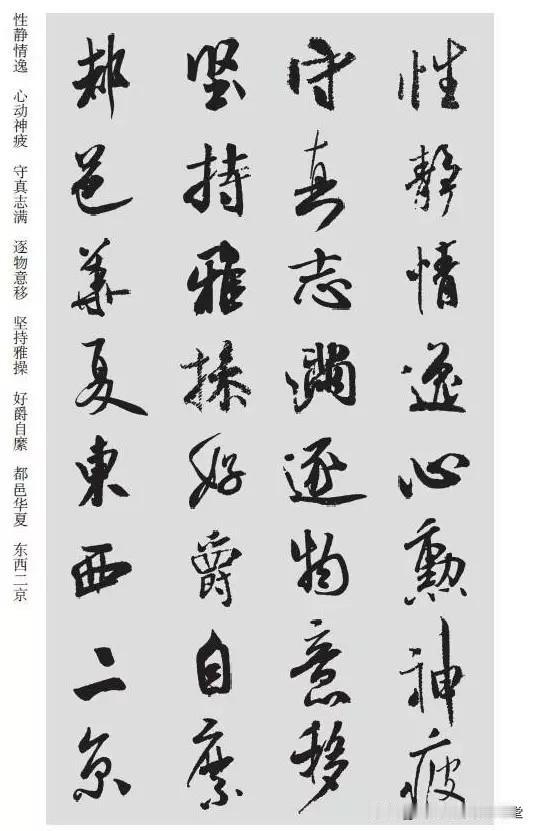 性靜情逸心動神疲
守真志滿逐物意移
堅持雅操好爵自縻
都邑華夏東西二京
性静情逸 心动神疲 守真志满 逐物意移 坚持雅操 好爵自縻 都邑华夏 东西二京
堂